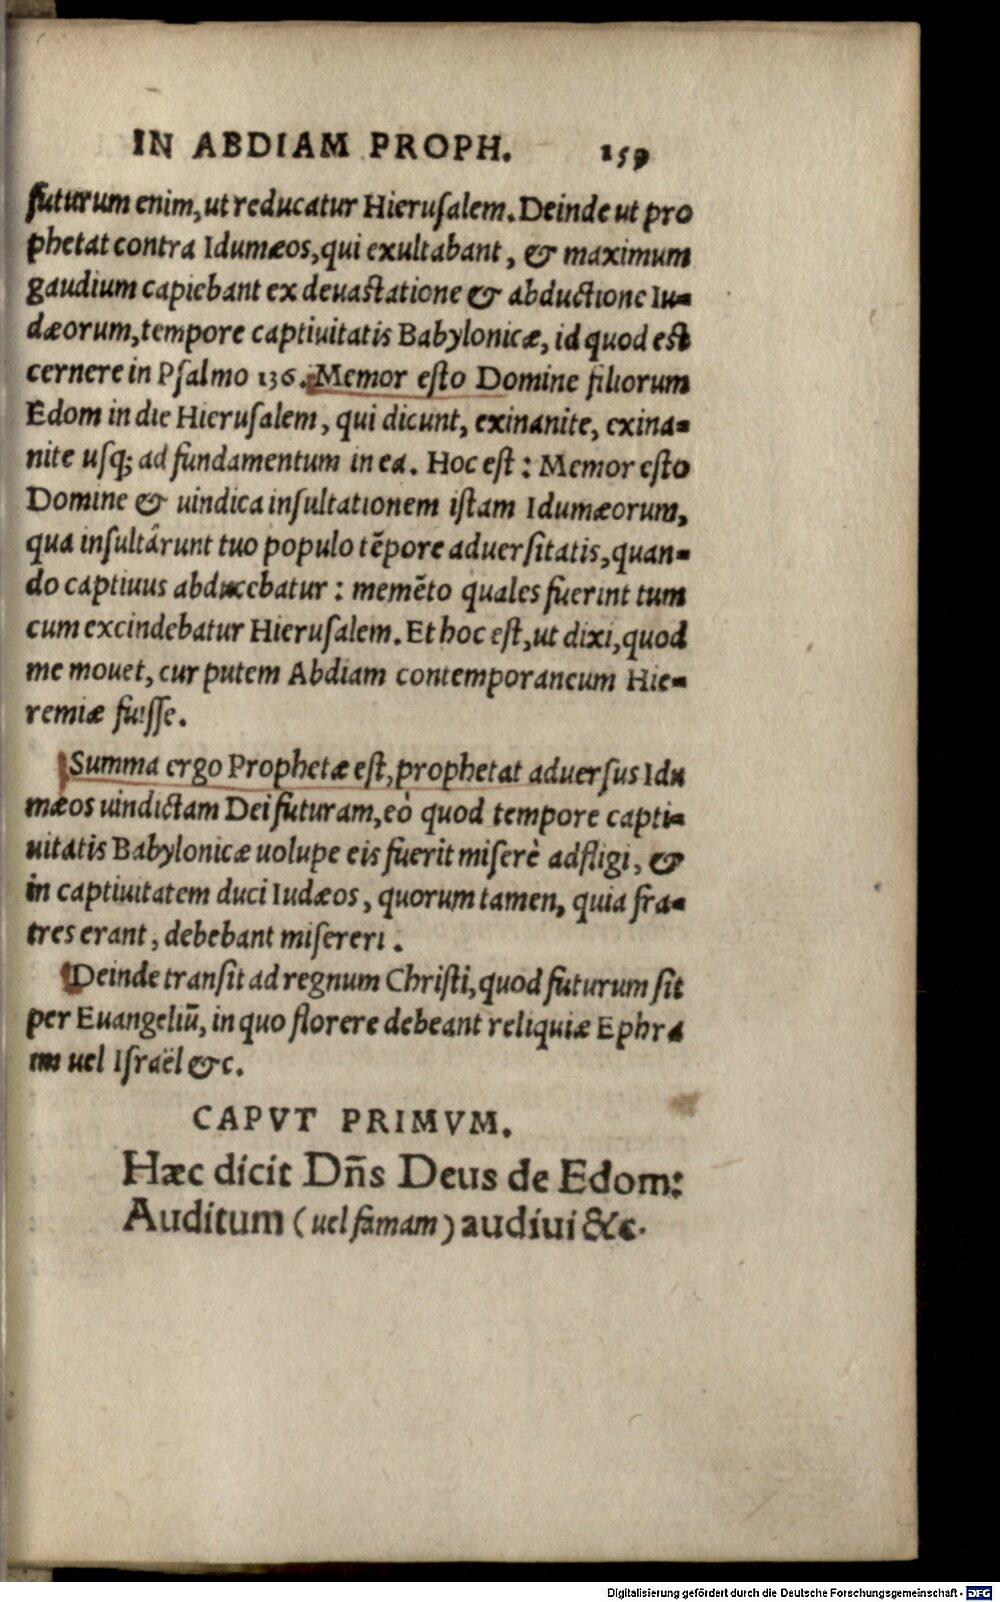 IN ABDIAM PROPH. 159
futurum enim, ut reducatur Hieruſalem. Deinde ut pro
phetat contra Idumæos, qui exultabant, & maximum
gaudium capiebant ex deuaſtatione & abductione Iu-
dæorum, tempore captiuitatis Babylonicæ, id quod eſt
cernere in Pſalmo 136. Memor eſto Domine filiorum
Edom in die Hieruſalem, qui dicunt, exinanite, exina-
nite uſq; ad fundamentum in ea. Hoc eſt: Memor eſto
Domine & uindica inſultationem iſtam Idumæorum,
qua inſultârunt tuo populo tẽpore aduerſitatis, quan-
do captiuus abducebatur: memẽto quales fuerint tum
cum excindebatur Hieruſalem. Et hoc eſt, ut dixi, quod
me mouet, cur putem Abdiam contemporaneum Hie-
remiæ fuiſſe.
Summa ergo Prophetæ eſt, prophetat aduerſus Idu
mæos uindictam Dei futuram, eò quod tempore capti-
uitatis Babylonicæ uolupe eis fuerit miſerè adfligi, &
in captiuitatem duci Iudæos, quorum tamen, quia fra-
tres erant, debebant miſereri.
Deinde tranſit ad regnum Chriſti, quod futurum ſit
per Euangeliũ, in quo florere debeant reliquiæ Ephra
im uel Iſraël &c.
CAPVT PRIMVM.
Hæc dicit Dñs Deus de Edom:
Auditum (uel famam) audiui &c.
Digitalisierung gefördert durch die Deutsche Forschungsgemeinschaft - DFG